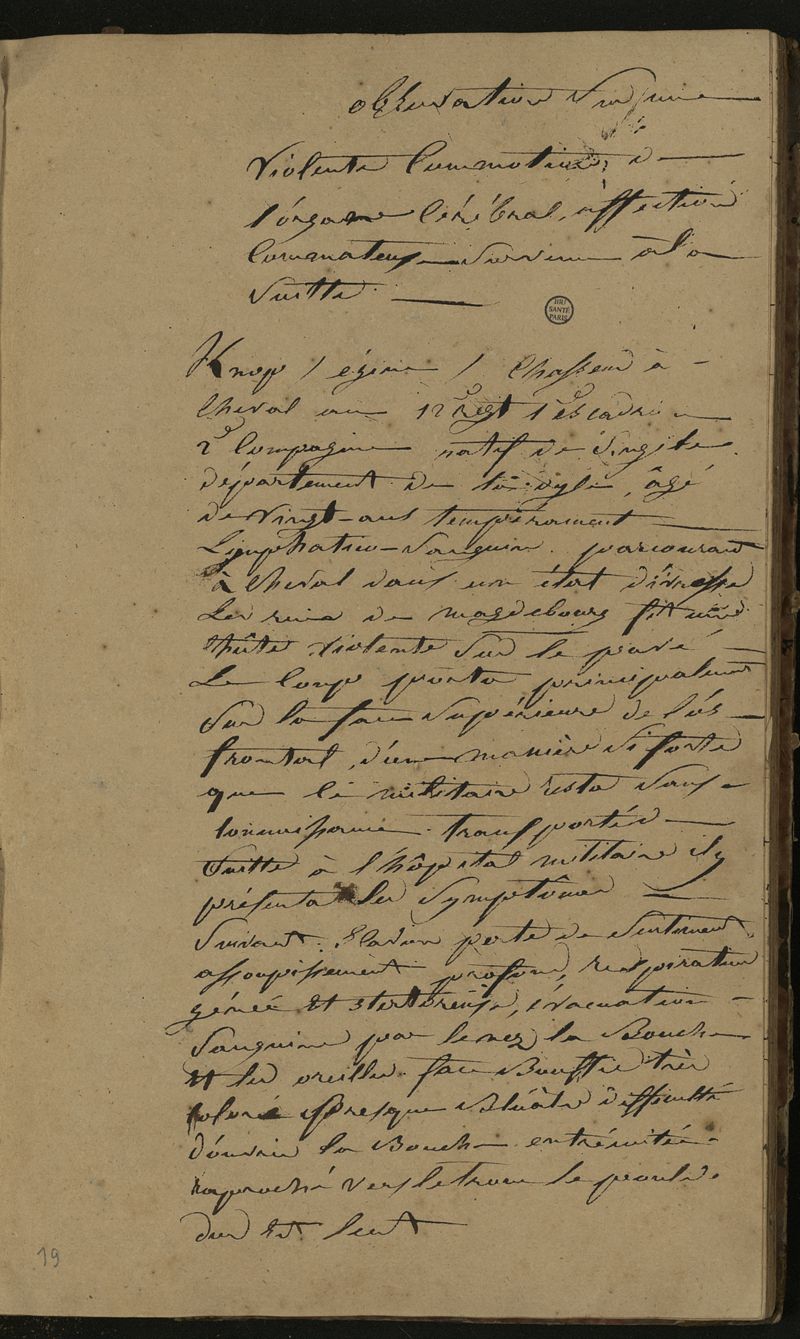 observation sur une
violente Commotion de
l'organe Cérébral, affection
Comateuse survenue à la
suitte.
BIU
SANTÉ
PARIS
Knop / égime / Chasseur à
Cheval au 12e regt 1er escadron
2e Compagnie natif de
département de la dyle, âgé
de vingt-ans tempérament
Limphatico-Sanguin. parcourant
à Cheval dans un état d'ivresse
Les rues de magdebourg fit une
Chûte violente sur le pavé
Le Coup porta principalement
sur la face supérieure de l'os
frontal, d'une manière si forte
que le militaire resta sans
connoissance. transporté de
suitte à l'hôpital militaire il y
présenta les symptômes
suivant. Stadur perte de sentiment,
assoupissement profond, respiration
gênée et stertoreuse, évacuation
sanguine par le nez la Bouche
et les oreilles. face Bouffie très
coloré presque Bluâtre difficulté
d'ouvrir la Bouche extrémités
raproché vers le tronc le pouls
dur et lent
19